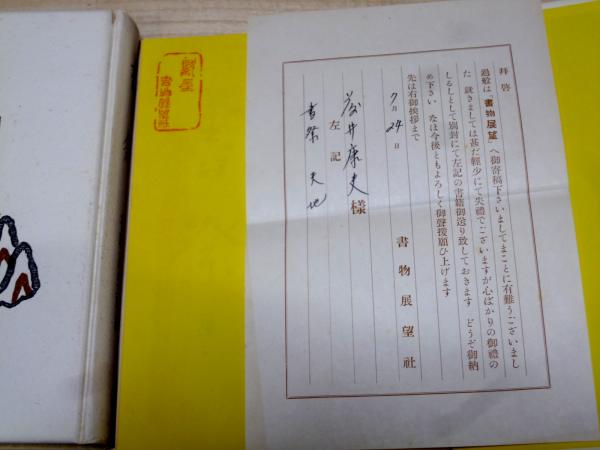 拝啓
過般は「書物展望」へ御寄稿下さいましてまことに有難うございまし
た 就きましては甚だ輕少にて失禮でございますが心ばかりの御禮の
しるしとして別封にて左記の書籍御送り致しておきます どうぞ御納
め下さい なほ今後ともよろしく御聲援願ひ上げます
先は右御挨拶まで
7月24日
書物展望社
井康夫様
左記
書祭 天地